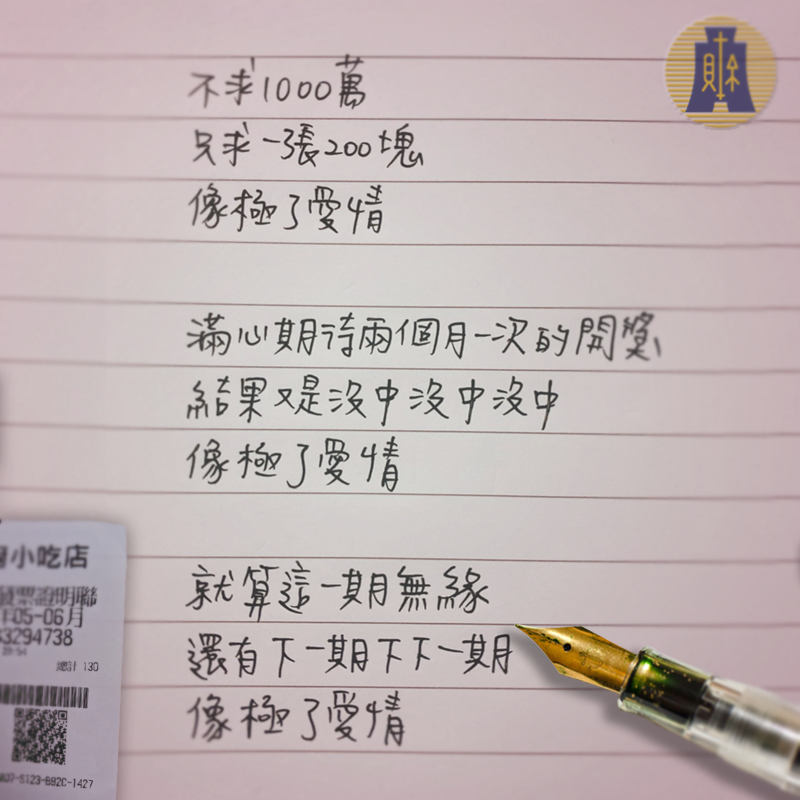 不求1000萬
只求一張200塊
像極了愛情
滿心期待兩個月一次的開獎
結果又是沒中沒中沒中
像極了愛情
就算這一期無緣
還有下一期下下一期
像極了愛情
小吃店
發票證明聯
年05-06月
3294738
總計 130
5123-B92C-1427